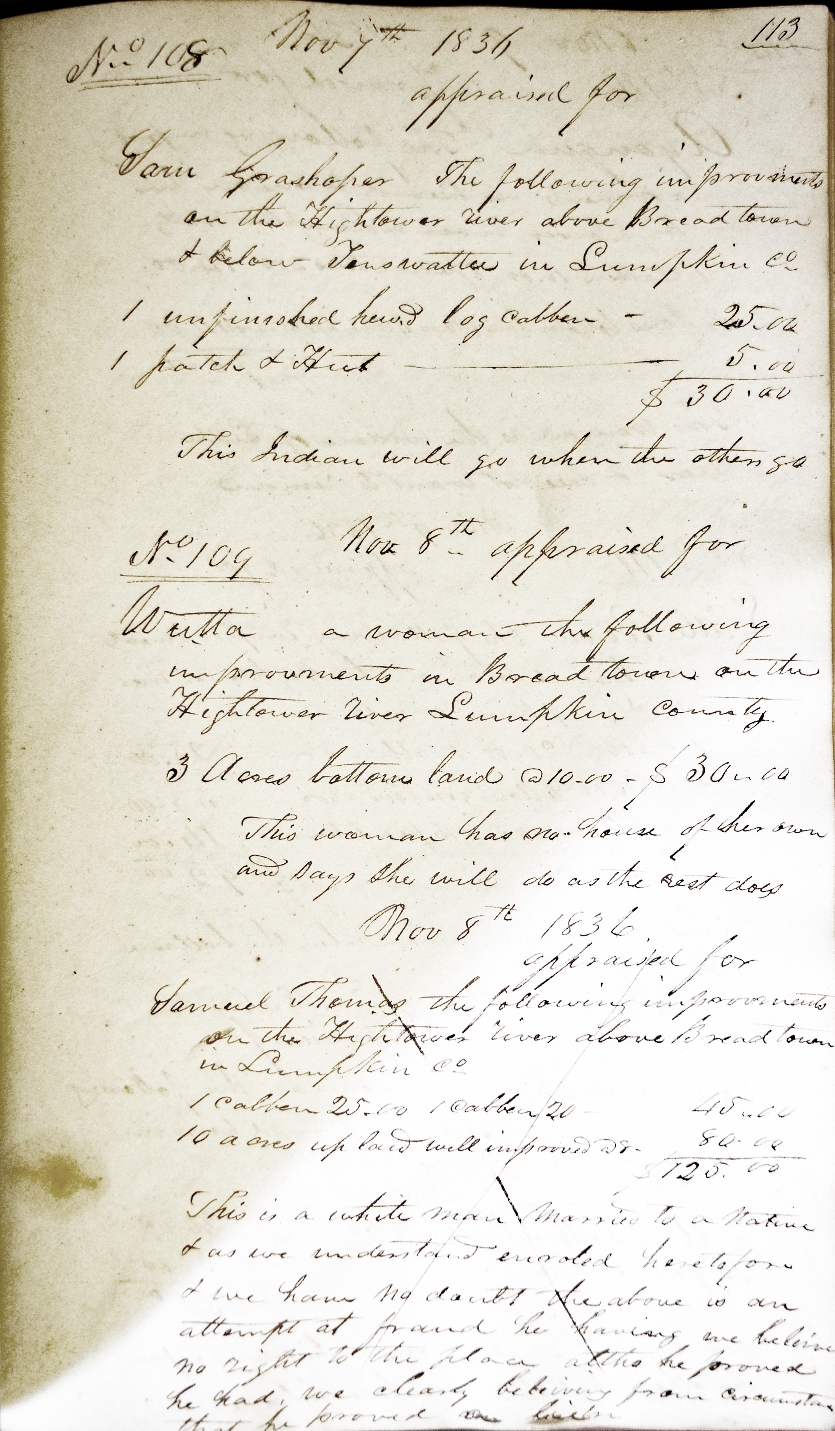 113
No. 108 Nov 7th 1836
appraised for
Sam Grashoper The following improvments
on the Hightower river above Bread town
& below Tenswattee in Lumpkin Co
1 unfinished hewd log cabben - 25.00
1 patch & Hut 5.00
$30.00
This Indian will go when the others go
No. 109 Nov 8th appraised for
Wutta a woman the following
improvments in Bread town on the
Hightower river Lumpkin County
3 Acres bottom land @10.00 - $30.00
This woman has no house of her own
and says she will do as the rest does
Nov 8th 1836
appraised for
Samuel Thomas the following improvments
on the Hightower river above Bread town
in Lumpkin Co
1 cabben 25.00 1 cabben 20 - 45.00
10 acres up land well improved @ 8- 80.00
$125.00
This is a white man Married to a Native
& as we understand enroled heretofore
& we have no doubt the above is an
attempt at fraud he having we believe
no right to the place altho he proved
he had, we clearly believing from circumstan
that he proved